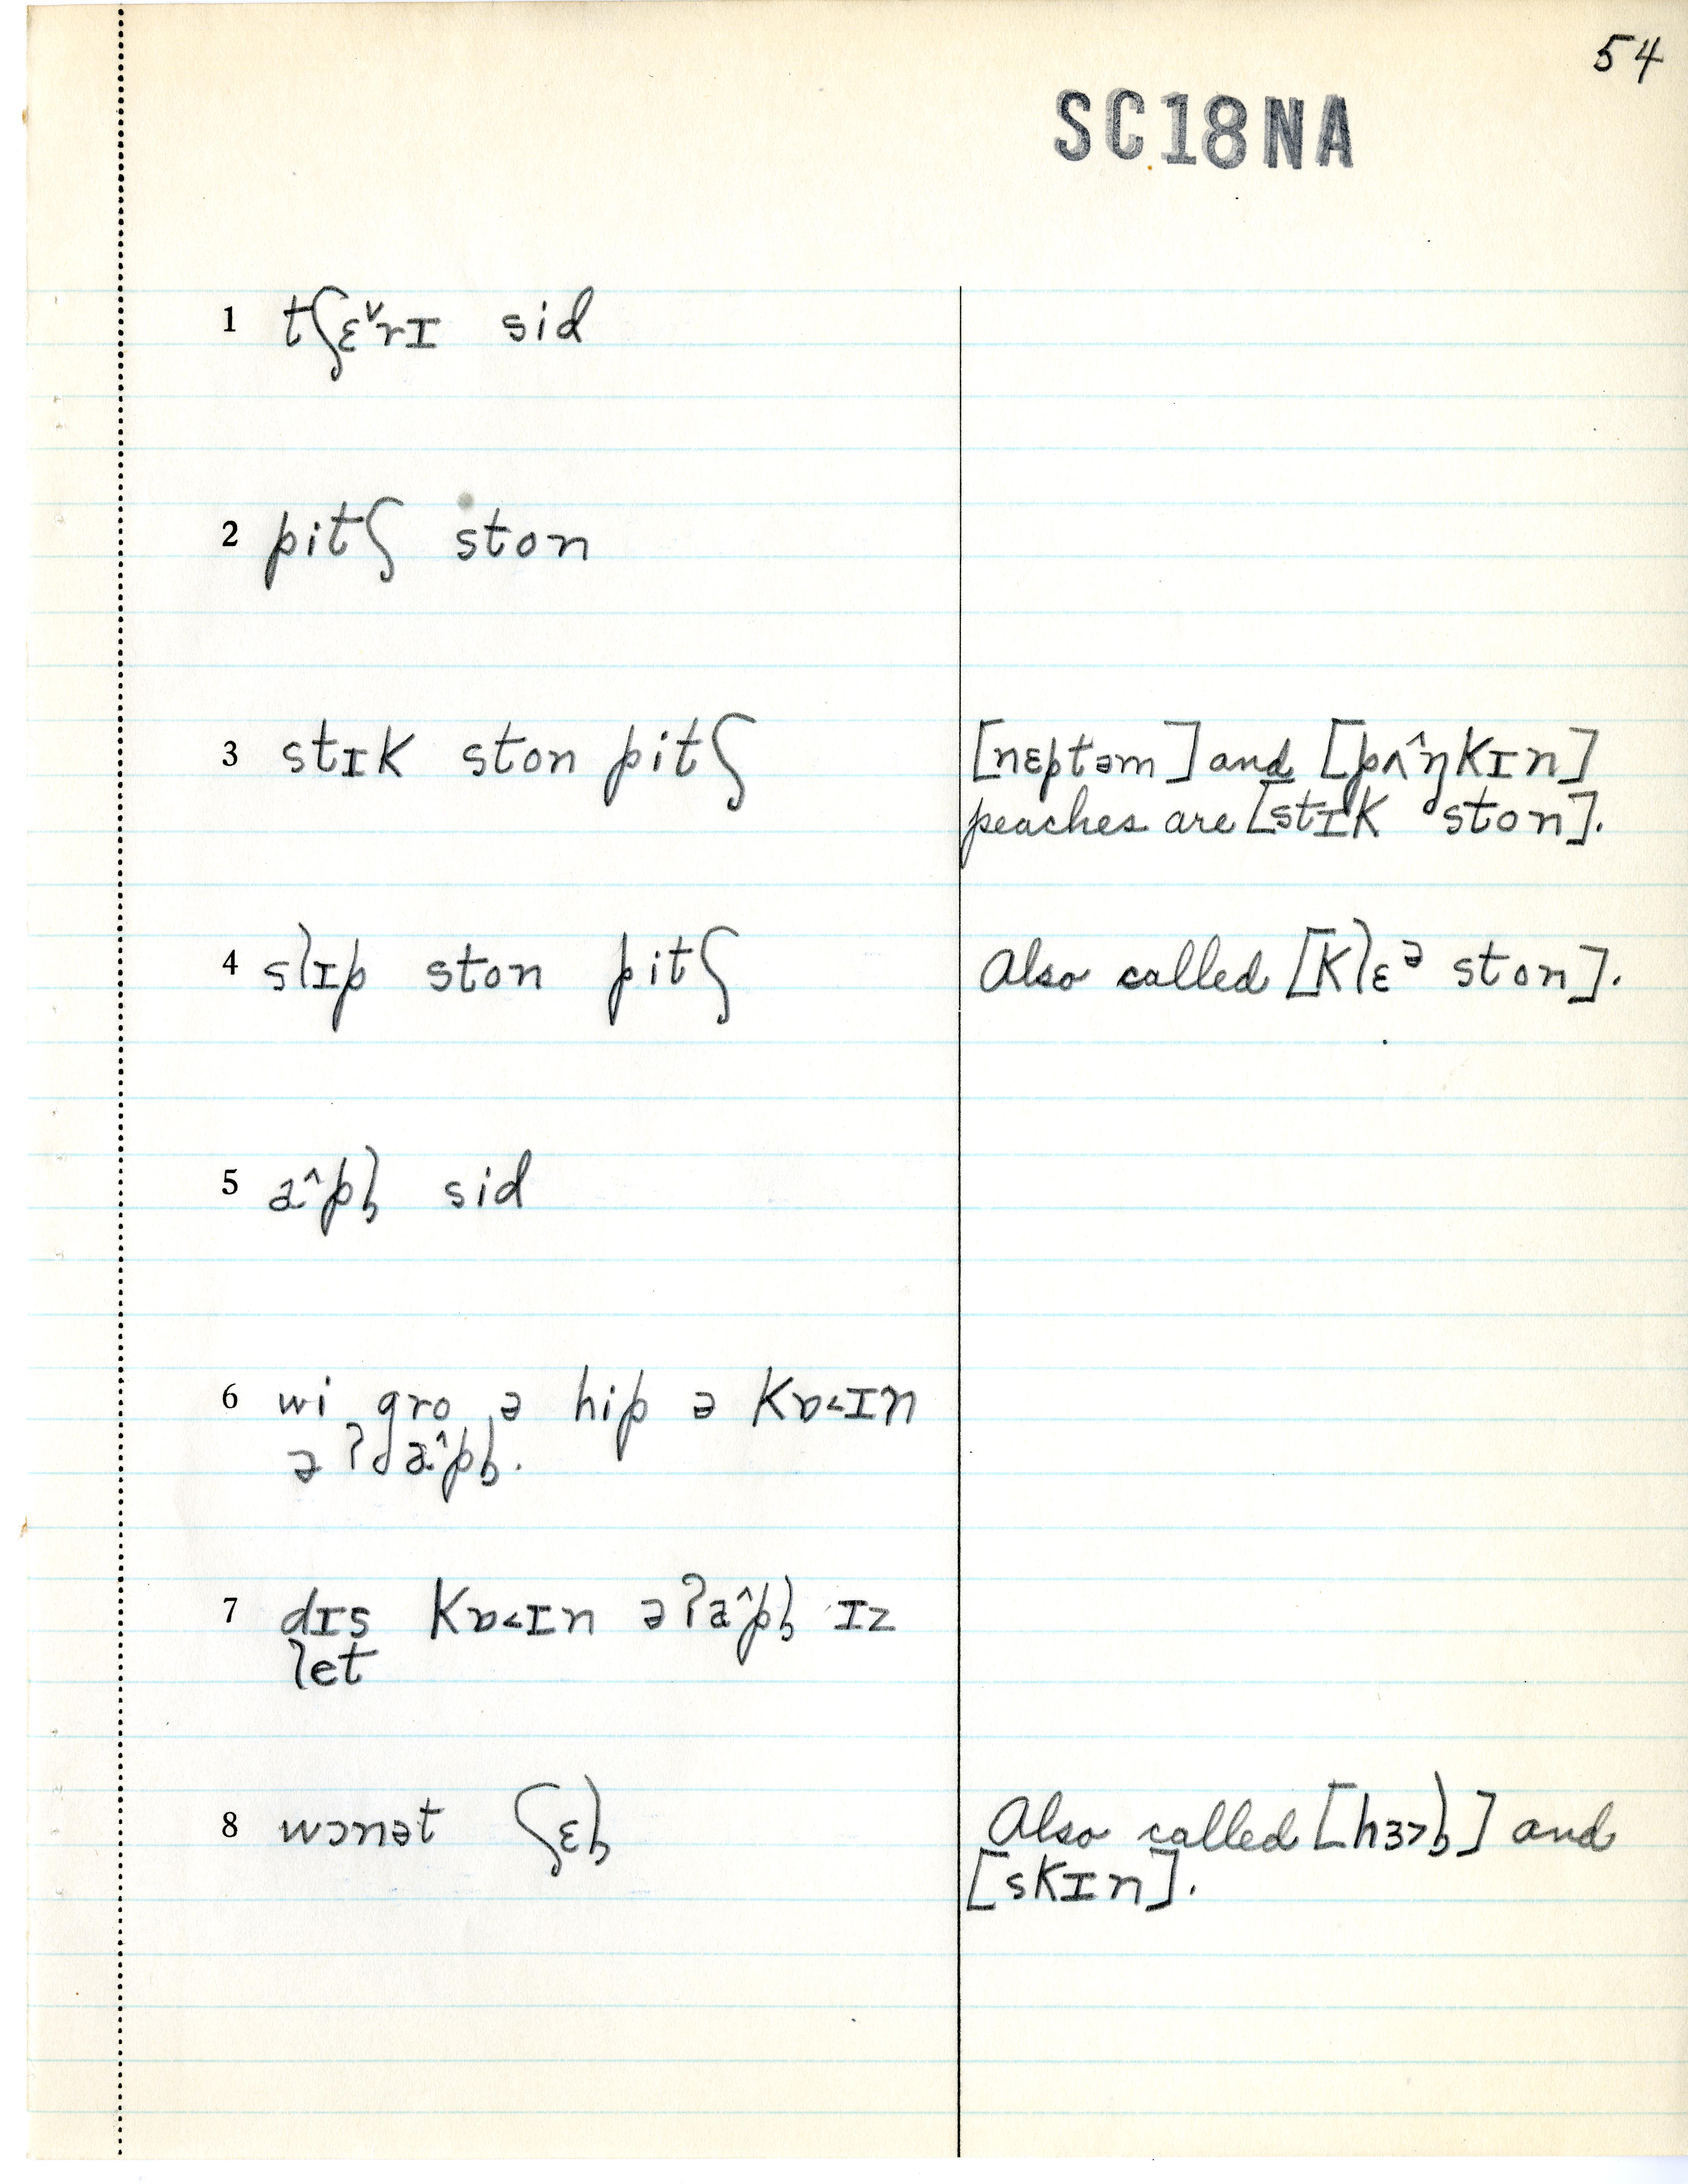 54
SC18NA
1 tʃɛ˅rɪ sid
2 pitʃ ston
3 stɪk ston pitʃ
[nɛptəm] and [pʌ^ŋkɪn]
peaches are [stɪk ston].
4 slɪp ston pitʃ
Also called [klɛᵊ ston].
5 a^pɫ sid
6 wi gro ə hip ə kɒ˂ɪn
ə ʔɟa^pɫ.
7 dɪs kɒ˂ɪn əʔa^pɫ ɪz
let
8 wɔnət ʃɛɫ
Also called [hɜ˃ɫ] and
[skɪn].